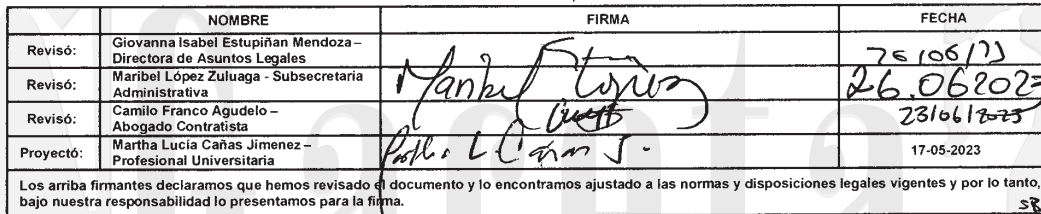 NOMBRE FIRMA FECHA
Revisó: Giovanna Isabel Estupiñan Mendoza –
Directora de Asuntos Legales
Revisó: Maribel López Zuluaga - Subsecretaria
Administrativa 26.06202
Revisó: Camilo Franco Agudelo –
Abogado Contratista 23/06/2023
Proyectó: Martha Lucía Cañas Jimenez –
Profesional Universitaria 17-05-2023
Los arriba firmantes declaramos que hemos revisado el documento y lo encontramos ajustado a las normas y disposiciones legales vigentes y por lo tanto,
bajo nuestra responsabilidad lo presentamos para la firma.